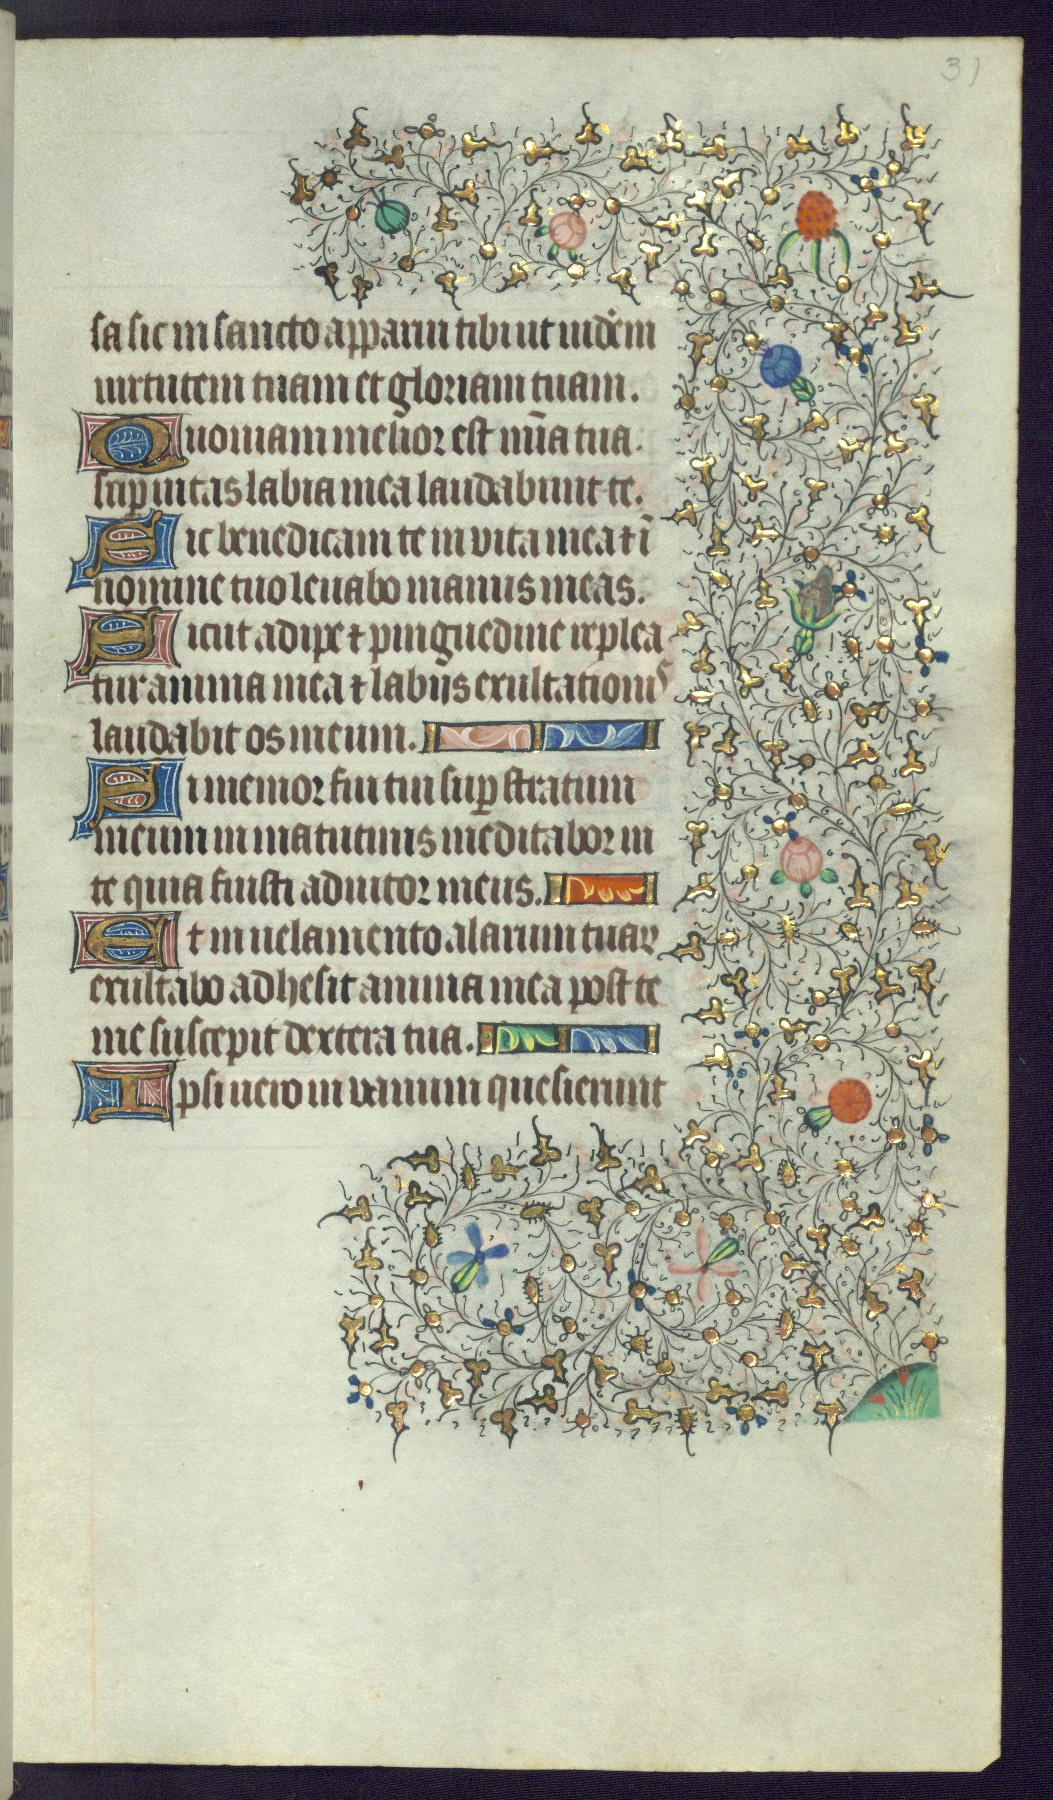 31
sa sic in sancto apparui tibi ut uidēm
uirtutem tuam et gloriam tuam.
Quoniam melior est mīa tua.
suꝑ uitas labia mea laudabunt te.
Sic benedicam te in vita mea ⁊ ī
nomine tuo leuabo manus meas.
Sicut adipe ⁊ pinguedine replea
tur anima mea ⁊ labiis exultationis
laudabit os meum.
Si memor fui tui suꝑ stratum
meum in matutinis meditabor in
te quia fuisti adiutor meus.
Et in uelamento alarum tuaꝝ
exultabo adhesit anima mea post te
me suscepit dextera tua.
Ipsi uero in vanum quesierunt